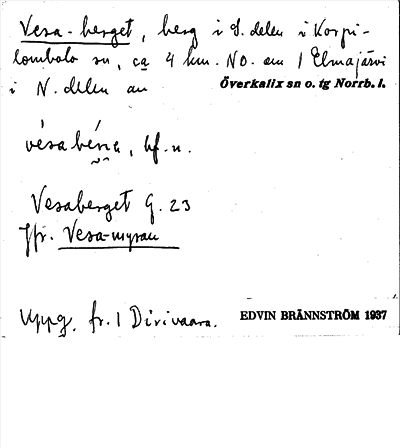 Vesa-berget, berg i S. delen i Korpi-
lombolo sn, ca 4 km. NO. om 1 Elmajärvi
i N. delen av Överkalix sn o. tg Norrb. l.
bf. n.
Vesaberget G. 23
Jfr. Vesa-myran
Uppg. fr. 1 Dirivaara.
EDVIN BRÄNNSTRÖM 1937